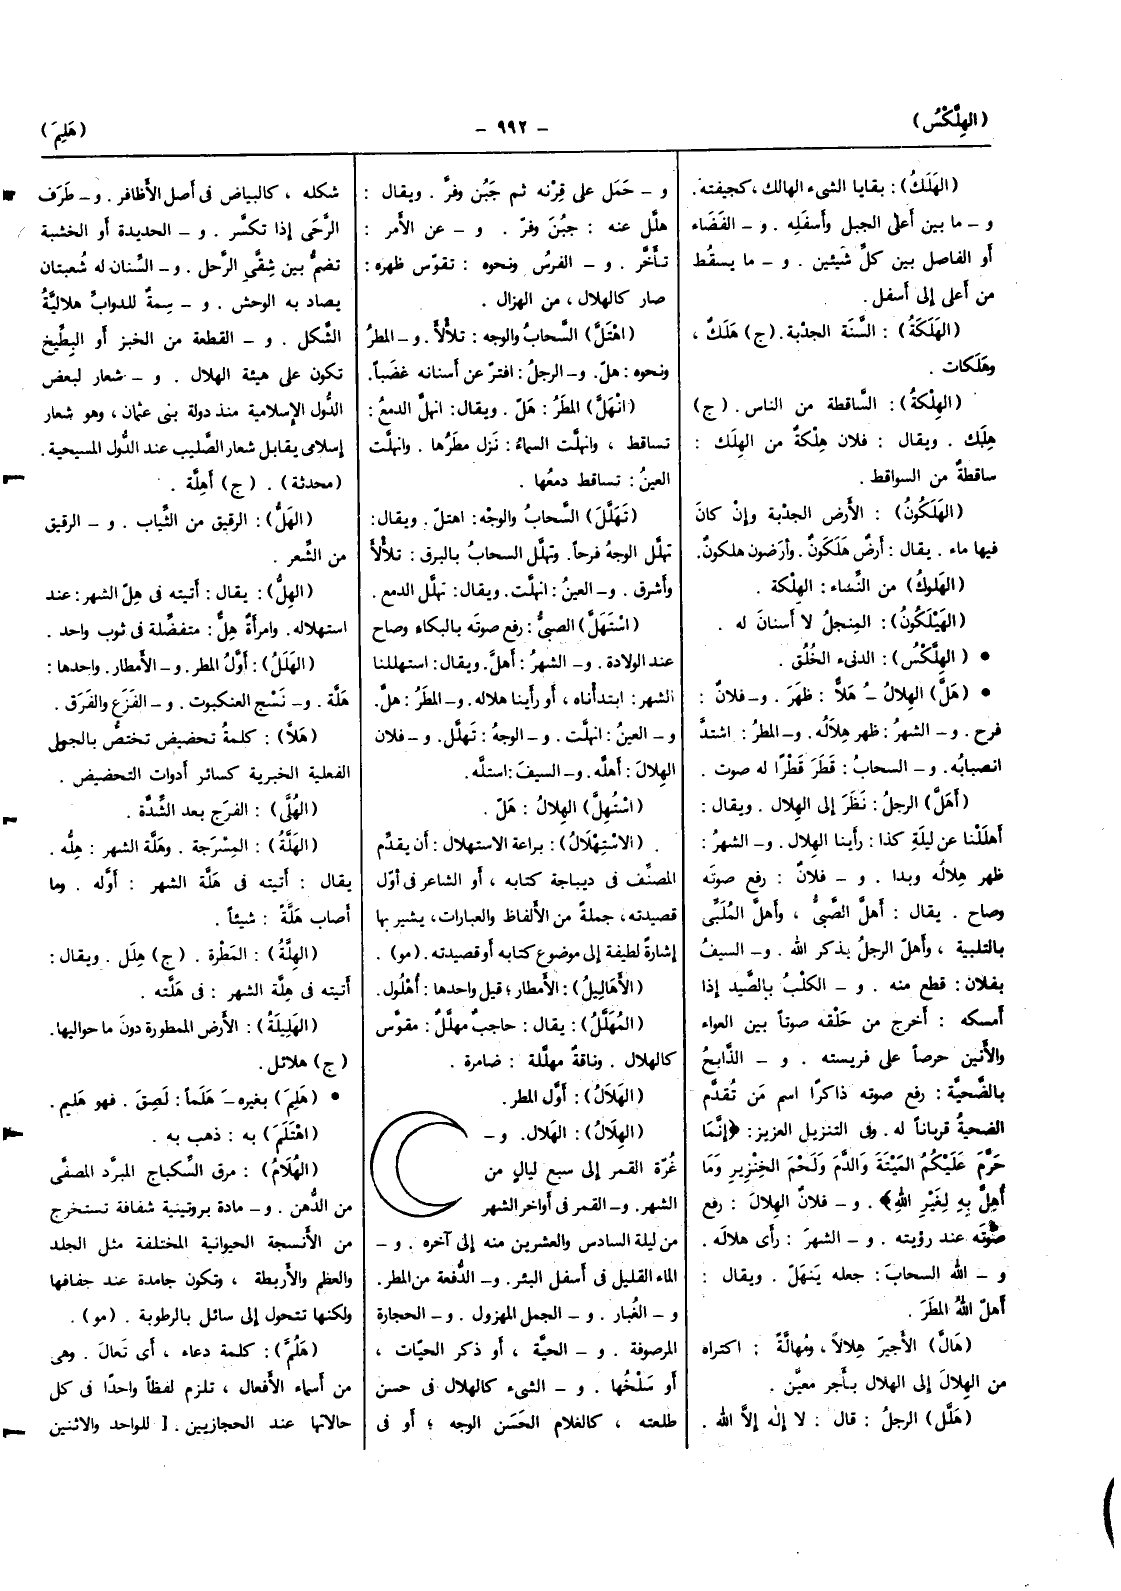 (الهِلَّكْسُ)
- ٩٩٢ -
(هَلِمَ)
(الهَلَكُ): بقايا الشيء الهالك، كجيفته.
و - ما بين أعلى الجبل وأسفَلِه. و - الفَضَاء
أو الفاصل بين كلِّ شيئين. و - ما يسقُط
من أعلى إلى أسفل.
(الهَلَكَةُ): السَّنَة الجدْبة. (ج) هَلَكٌ،
وهَلَكات.
(الهِلْكَةُ): السَّاقطة من الناس. (ج)
هِلَك. ويقال: فلان هِلْكةٌ من الهِلَك:
ساقطةٌ من السواقط.
(الهَلَكُونُ): الأَرض الجدْبة وإنْ كانَ
فيها ماء. يقال: أَرضٌ هَلَكونٌ. وأَرَضون هلكونٌ.
(الهَلوكُ) من النِّساء: الهِلْكة.
(الهَيْلَكُونُ): المِنجلُ لا أسنانَ له.
● (الهِلَّكْسُ): الدنىء الخُلُق.
● (هَلَّ) الهلالُ -ُ هَلاًّ: ظهَرَ. و- فلانٌ:
فرح. و - الشهرُ: ظهر هِلَالُه. و- المطرُ: اشتدَّ
انصبابُه. و - السحابُ: قَطَرَ قَطْرًا له صوت.
(أَهَلَّ) الرجلُ: نَظَرَ إلى الهلال. ويقال:
أهلَلْنا عن ليلةِ كذا: رأينا الهلال. و - الشهرُ:
ظهر هِلالُه وبدا. و - فلانٌ: رفع صوتَه
وصاح. يقال: أَهلَّ الصَّبىُّ، وأَهلَّ المُلَبِّى
بالتلبية، وأَهلّ الرجلُ بذكر الله. و - السيفُ
بفلان: قطع منه. و - الكلْبُ بالصَّيد إذا
أمسكه: أخرج من حَلْقه صوتاً بين العواء
والأَنين حرصاً على فريسته. و - الذَّابحُ
بالضَّحيَّة: رفع صوته ذاكرًا اسم مَن تُقدَّم
الضحيةُ قرباناً له. وفى التنزيل العزيز: ﴿إِنَّمَا
حَرَّمَ عَلَيْكُمُ المَيْتَةَ وَالدَّمَ وَلَحْمَ الخِنْزِيرِ وَمَا
أُهِلَّ بِهِ لِغَيْرِ اللهِ﴾. و - فلانٌ الهلالَ: رفع
صَوْتَه عند رؤيته. و - الشهرَ: رأى هلاله.
و - الله السحابَ: جعله يَنهَلّ. ويقال:
أهلّ اللهُ المطَرَ.
(هَالَّ) الأَجيرَ هِلالاً، ومُهالَّةً: اكتراه
من الهلالَ إلى الهلال بأَجر معيَّن.
(هَلَّل) الرجلُ: قال: لا إله إلاَّ الله.
و - حَمَل على قِرْنه ثم جَبُن وفرَّ. ويقال:
هلَّل عنه: جبُنَ وفرّ. و - عن الأَمر:
تأَخَّر. و - الفرسُ ونحوه: تقوّس ظهره:
صار كالهلال، من الهزال.
(اهْتَلَّ) السَّحابُ والوجه: تلأْلأَ. و - المطرُ
ونحوه: هلّ. و - الرجلُ: افترّ عن أسنانه غضَباً.
(انْهَلَّ) المطَرُ: هَلّ. ويقال: انهلّ الدمعُ:
تساقط، وانهلَّت السماءُ: نَزل مطَرُها. وانهلَّت
العينُ: تساقط دمعُها.
(تَهَلَّلَ) السَّحابُ والوجْه: اهتلّ. ويقال:
تهلَّل الوجهُ فرحاً. وتهلَّل السحابُ بالبرق: تلأْلأَ
وأشرق. و - العينُ: انهلَّت. ويقال: تهلَّل الدمع.
(اسْتَهَلَّ) الصبىُّ: رفع صوتَه بالبكاء وصاح
عند الولادة. و - الشهرُ: أَهلَّ. ويقال: استهللنا
الشهر: ابتدأْناه، أو رأينا هلاله. و - المطَرُ: هلّ.
و - العينُ: انهلَّت. و - الوجهُ: تَهلَّل. و - فلان
الهلالَ: أهلَّه. و - السيفَ: استلَّه.
(اسْتُهِلَّ) الهلالُ: هَلّ.
(الاسْتِهْلَالُ): براعة الاستهلال: أن يقدِّم
المصنِّف فى ديباجة كتابه، أو الشاعر فى أوّل
قصيدته، جملةً من الأَلفاظ والعبارات، يشير بها
إشارةً لطيفة إلى موضوع كتابه أو قصيدته. (مو).
(الأَهَالِيلُ): الأَمطار؛ قيل واحدها: أُهْلُول.
(المُهَلَّلُ): يقال: حاجبٌ مهلَّلٌ: مقوَّس
كالهلال. وناقةٌ مهلَّلة: ضامرة.
(الهَلَالُ): أوَّل المطر.
(الهِلَالُ): الهَلال. و -
غُرّة القمر إلى سبع ليالٍ من
الشهر. و - القمر فى أواخر الشهر
من ليلة السادس والعشرين منه إلى آخره. و -
الماء القليل فى أسفل البئر. و - الدُّفعة من المطر.
و - الغُبار. و - الجمل المهزول. و - الحجارة
المرصوفة. و - الحيَّة، أو ذكر الحيّات،
أو سَلْخُها. و - الشىء كالهلال فى حسن
طلعته، كالغلام الحَسَن الوجه؛ أو فى
شكله، كالبياض فى أصل الأَظافر. و - طَرَف
الرَّحَى إذا تكسَّر. و - الحديدة أو الخشبة
تضمُّ بين شِقَّى الرَّحل. و - السِّنان له شُعبتان
يصاد به الوحش. و - سِمةٌ للدوابِّ هلاليَّةُ
الشَّكل. و - القطعة من الخبز أو البِطِّيخ
تكون على هيئة الهلال. و - شعار لبعض
الدُّول الإسلامية منذ دولة بنى عثمان، وهو شعار
إسلامى يقابل شعار الصَّليب عند الدُّول المسيحية.
(محدثة). (ج) أَهِلَّة.
(الهَلُّ): الرقيق من الثِّياب. و - الرقيق
من الشِّعر.
(الهِلُّ): يقال: أتيته فى هِلّ الشهر: عند
استهلاله. وامرأَةٌ هِلٌّ: متفضِّلة فى ثوب واحد.
(الهَلَلُ): أوَّلُ المطر. و - الأَمطار. واحدها:
هَلَّة. و - نَسْج العنكبوت. و - الفَزَع والفَرَق.
(هَلاَّ): كلمةُ تحضيض تختصُّ بالجمل
الفعلية الخبرية كسائر أدوات التحضيض.
(الهُلَّى): الفرَج بعد الشِّدَّة.
(الهَلَّةُ): المِسْرَجة. وهَلَّة الشهر: هِلُّه.
يقال: أتيته فى هَلَّة الشهر: أوَّله. وما
أصاب هَلَّةً: شيئاً.
(الهِلَّةُ): المَطْرة. (ج) هِلَل. ويقال:
أتيته فى هِلَّة الشهر: فى هَلَّته.
(الهَلِيلَةُ): الأَرض الممطورة دونَ ما حواليها.
(ج) هلائل.
● (هَلِمَ) بغيره -َ هَلَماً: لَصِقَ. فهو هَلِيم.
(اهْتَلَمَ) به: ذهب به.
(الهُلَامُ): مرق السِّكباج المبرَّد المصفَّى
من الدُّهن. و - مادة بروتينية شفافة تستخرج
من الأَنسجة الحيوانية المختلفة مثل الجلد
والعظم والأَربطة، وتكون جامدة عند جفافها
ولكنها تتحول إلى سائل بالرطوبة. (مو).
(هَلُمَّ): كلمة دعاء، أى تَعالَ. وهى
من أسماء الأَفعال، تلزم لفظاً واحدًا فى كل
حالاتها عند الحجازيين. [ للواحد والاثنين